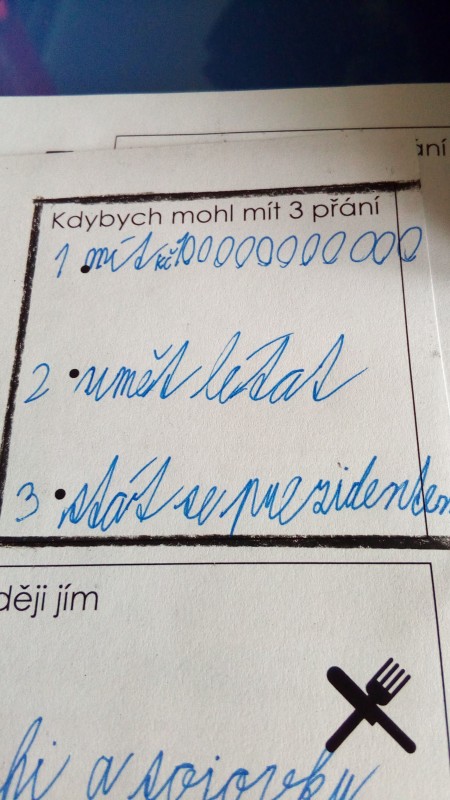 ání
Kdybych mohl mít 3 přání
1 mít kč 1000000000000
2 umět létat
3 stát se prezidentem
ději jím
hi a sojovky